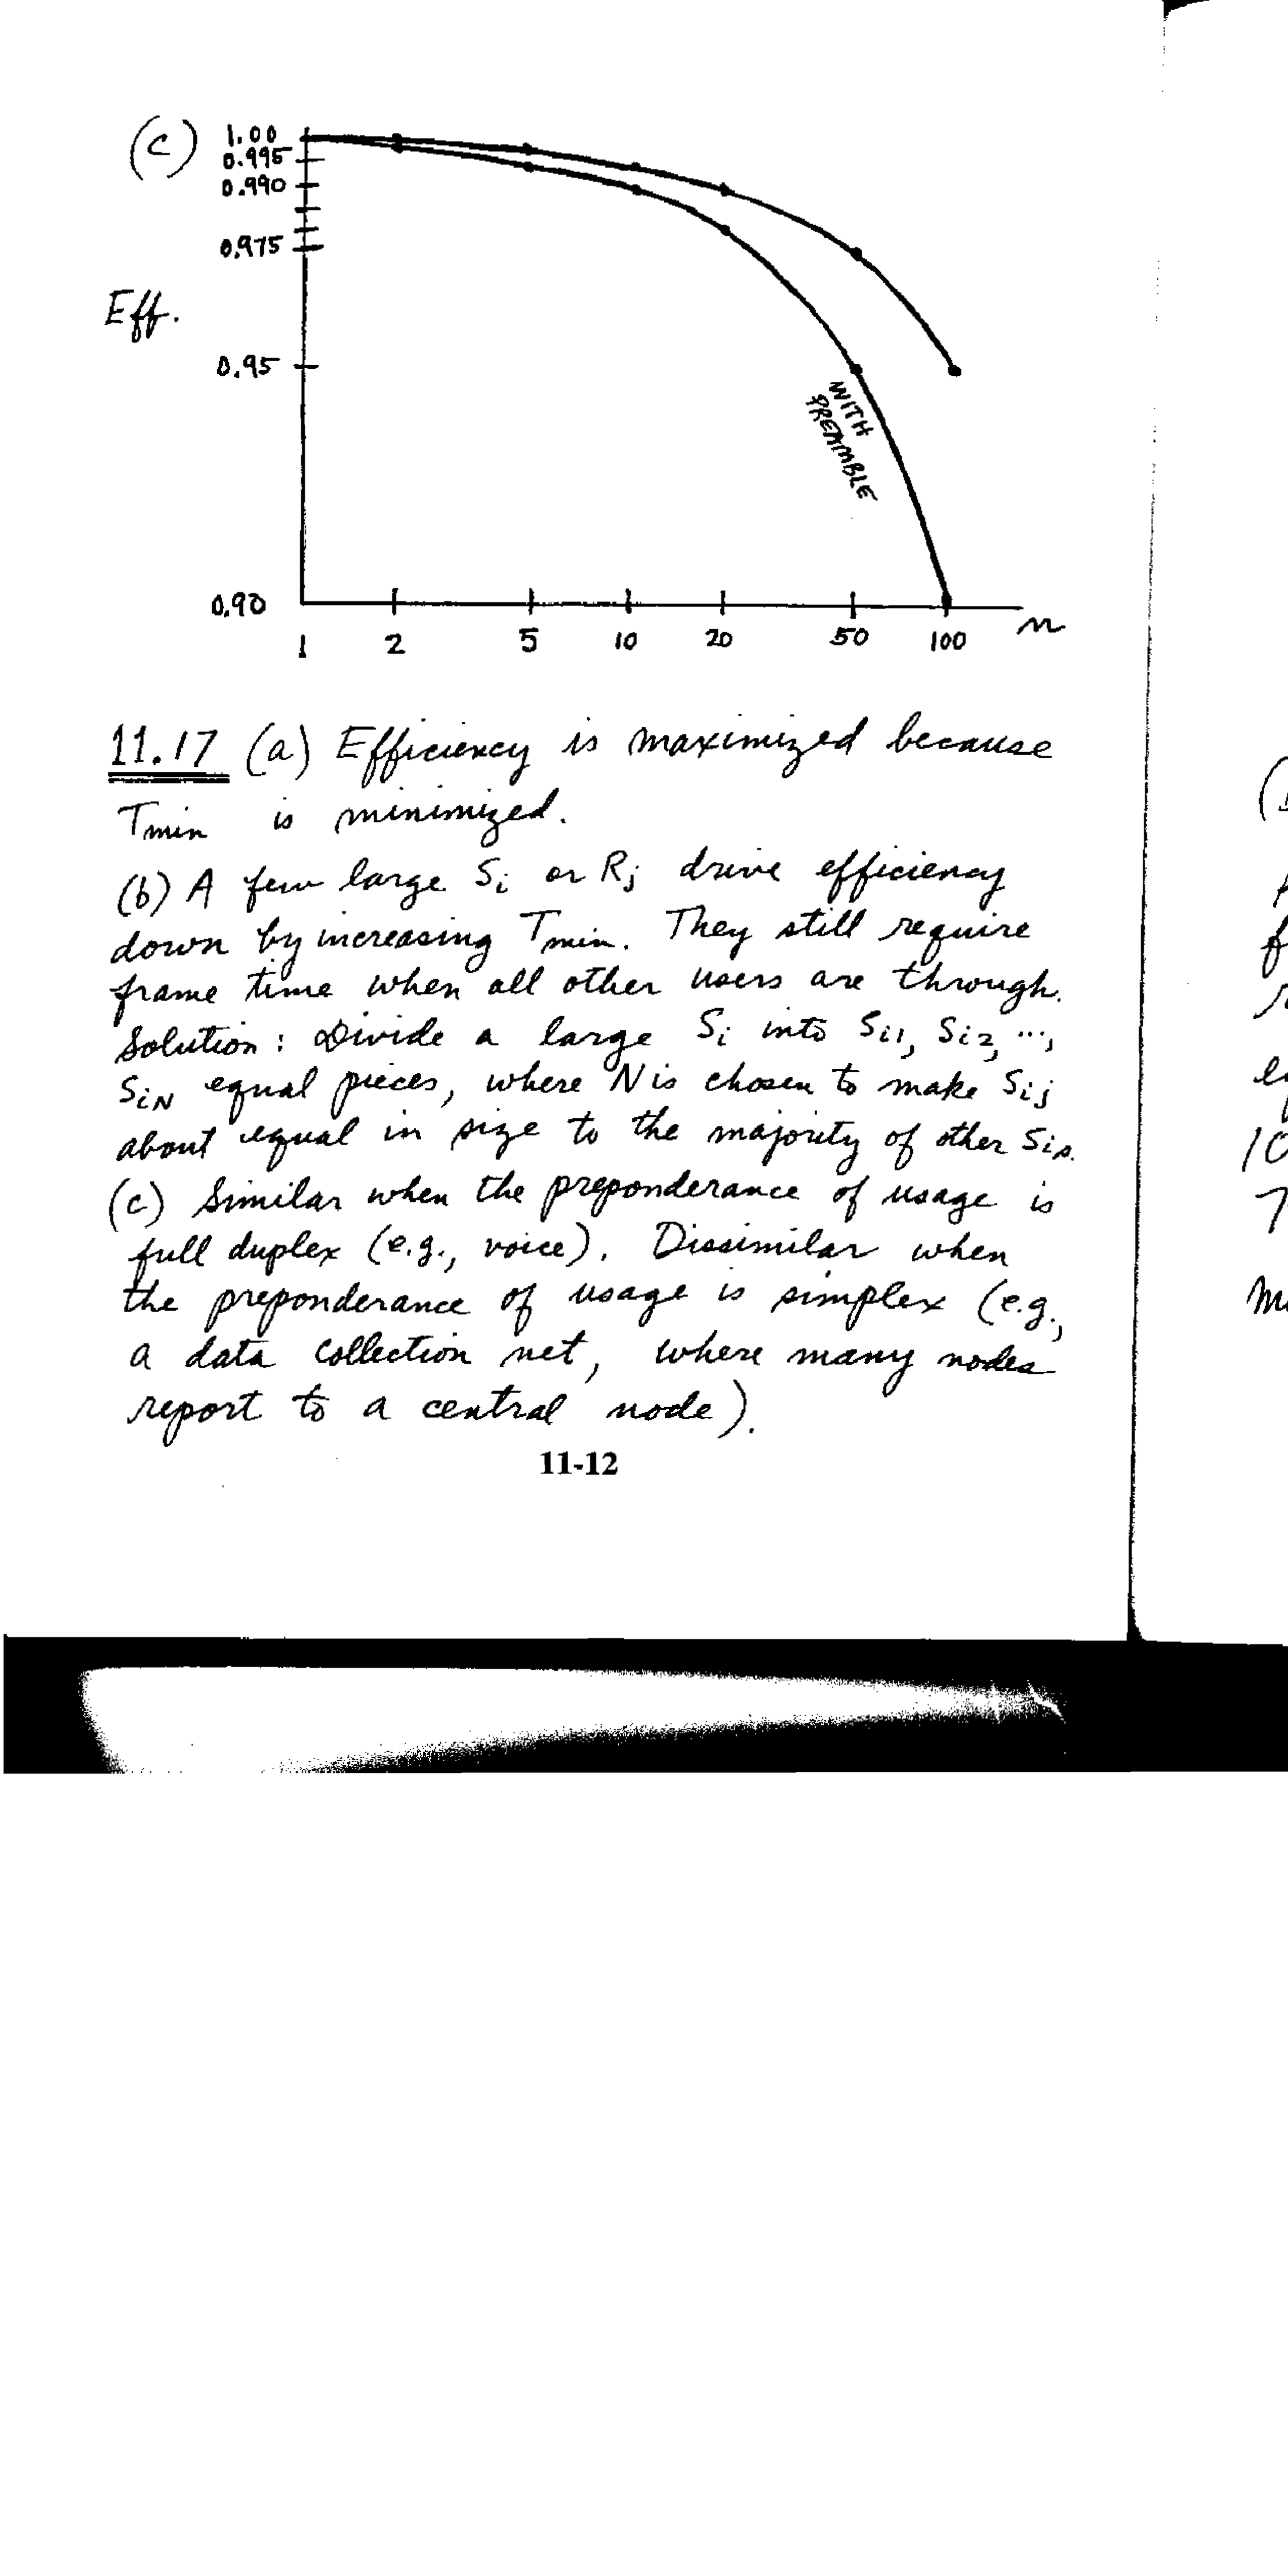 (c)
1.00
0.995
0.990
0.975
Eff.
0.95
WITH
PREAMBLE
0.90
1 2 5 10 20 50 100 n
11.17 (a) Efficiency is maximized because
Tmin is minimized.
(b) A few large Si or Rj drive efficiency
down by increasing Tmin. They still require
frame time when all other users are through.
Solution: Divide a large Si into Si1, Si2, ...,
SiN equal pieces, where N is chosen to make Sij
about equal in size to the majority of other Sis.
(c) Similar when the preponderance of usage is
full duplex (e.g., voice). Dissimilar when
the preponderance of usage is simplex (e.g.,
a data collection net, where many nodes
report to a central node).
11-12
10